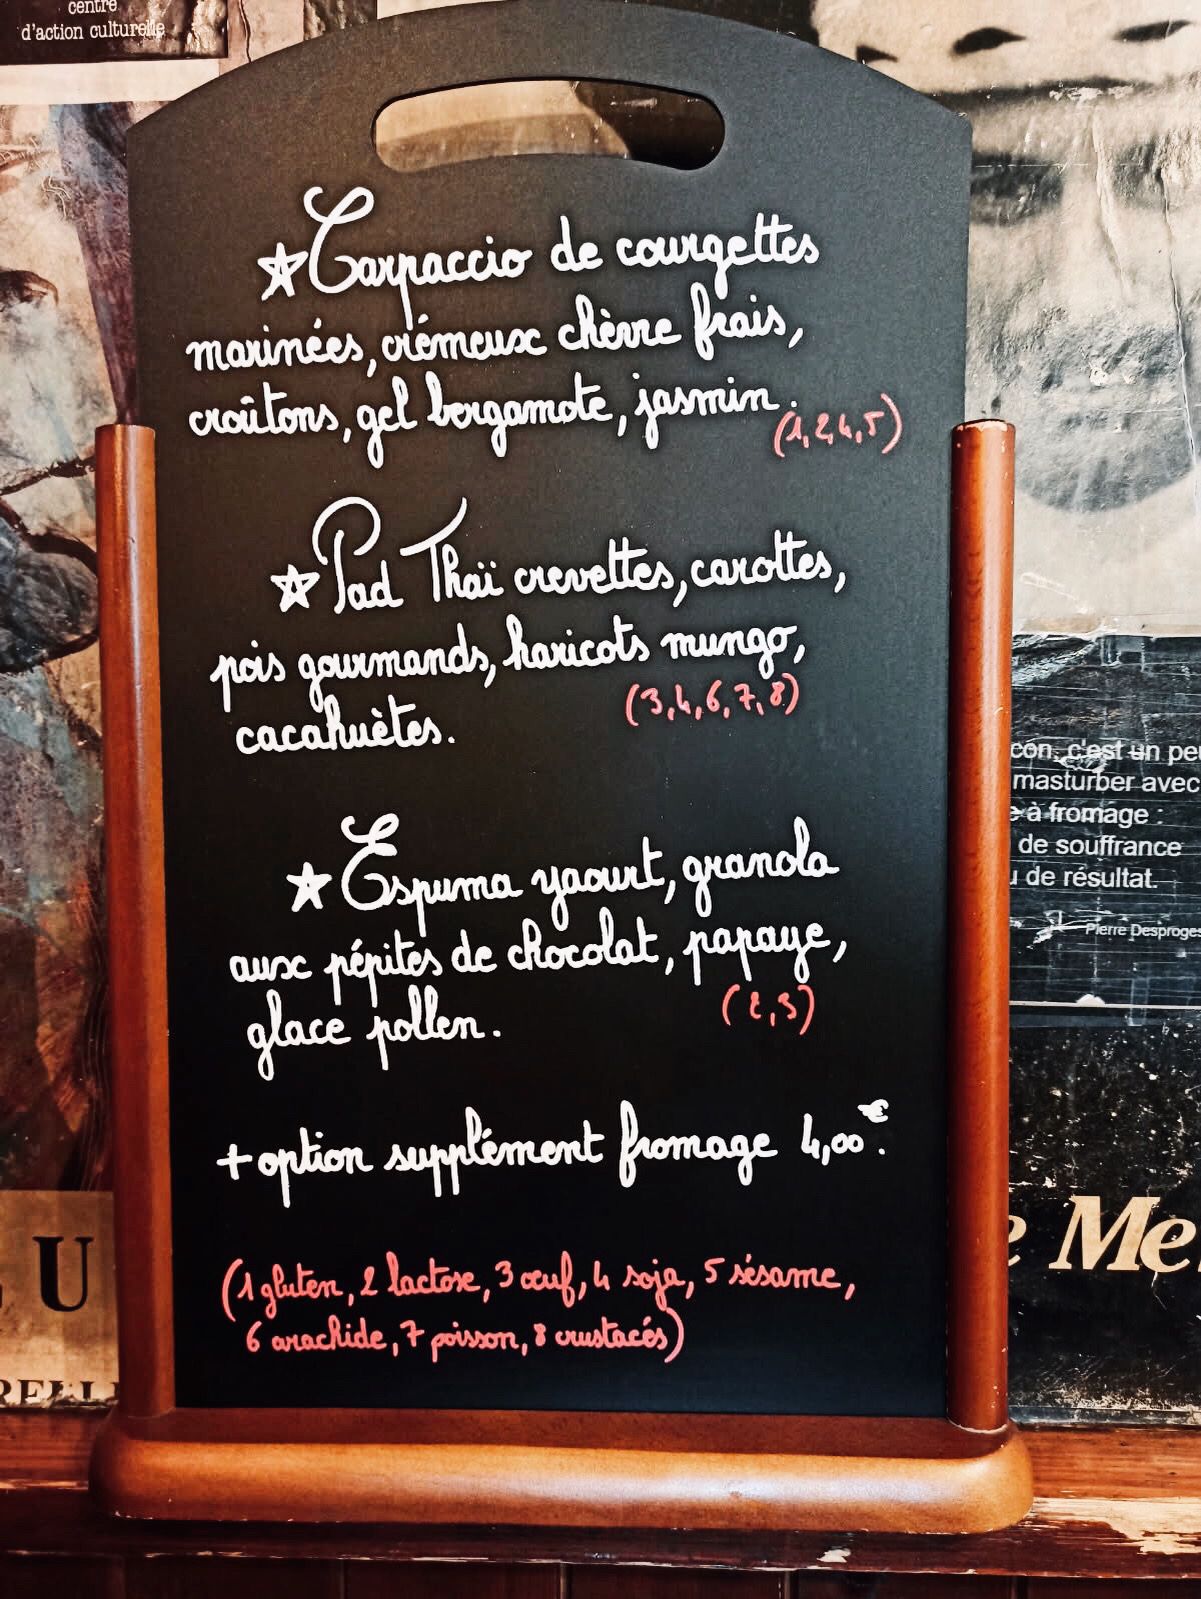 centre
d'action culturelle
Carpaccio de courgettes
marinées, crémeux chèvre frais,
croûtons, gel bergamote, jasmin.
(1,2,4,5)
Pad Thaï crevettes, carottes,
pois gourmands, haricots mungo,
cacahuètes.
(3,4,6,7,8)
Espuma yaourt, granola
aux pépites de chocolat, papaye,
glace pollen.
(2,3)
+ option supplément fromage 4,00€.
(1 gluten, 2 lactose, 3 œuf, 4 soja, 5 sésame,
6 arachide, 7 poisson, 8 crustacés)
con, c'est un peu
masturber avec
e à fromage :
de souffrance
u de résultat.
Pierre Desproges
e Me
U
RELL